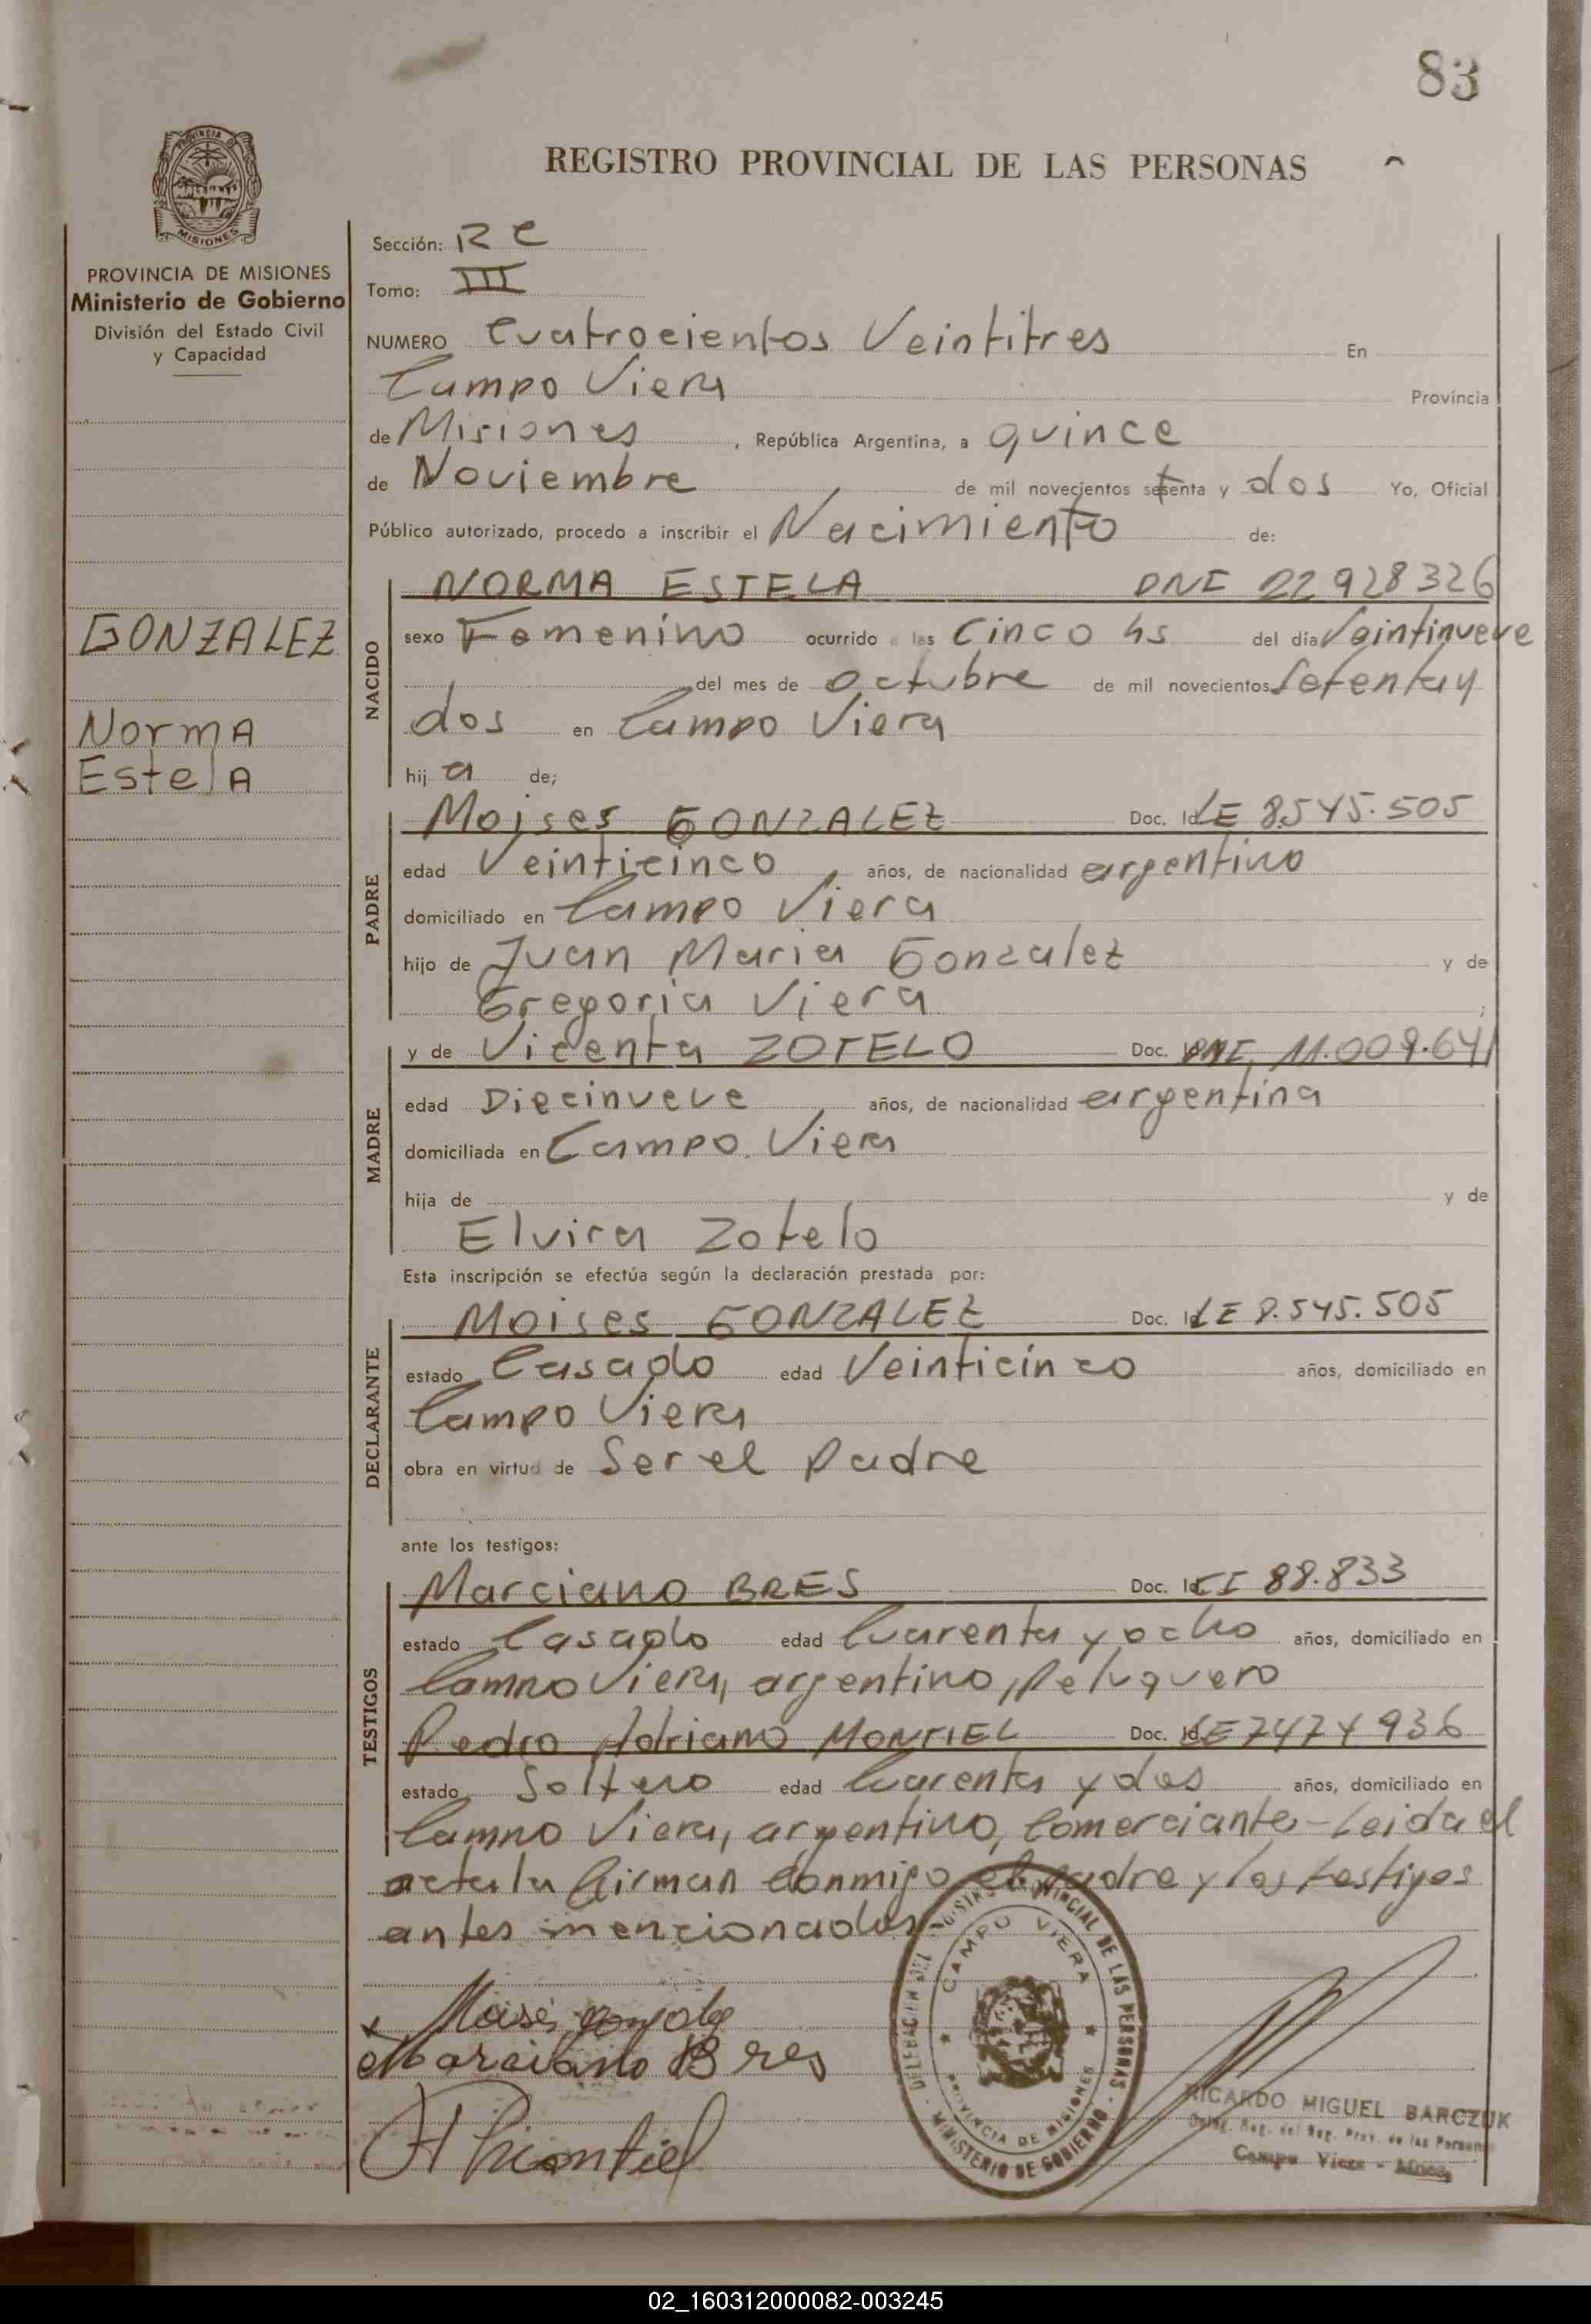 83
PROVINCIA DE
MISIONES
REGISTRO PROVINCIAL DE LAS PERSONAS
PROVINCIA DE MISIONES
Ministerio de Gobierno
División del Estado Civil
y Capacidad
GONZALEZ
Norma
Estela
Sección: RC
Tomo: III
NUMERO Cuatrocientos Veintitres En
Campo Viera Provincia
de Misiones, República Argentina, a quince
de Noviembre de mil novecientos setenta y dos Yo, Oficial
Público autorizado, procedo a inscribir el Nacimiento de:
NACIDO
NORMA ESTELA DNI 22928326
sexo Femenino ocurrido a las Cinco hs del día Veintinueve
del mes de Octubre de mil novecientos Setenta y
dos en Campo Viera
hija de;
PADRE
Moises GONZALEZ Doc. Id LE 8.545.505
edad Veinticinco años, de nacionalidad argentino
domiciliado en Campo Viera
hijo de Juan Maria Gonzalez y de
Gregoria Viera ;
MADRE
y de Vicenta ZOTELO Doc. DNI. 11.009.641
edad Diecinueve años, de nacionalidad argentina
domiciliada en Campo. Viera
hija de y de
Elvira Zotelo
Esta inscripción se efectúa según la declaración prestada por:
DECLARANTE
Moises GONZALEZ Doc. Id LE 8.545.505
estado Casado edad Veinticinco años, domiciliado en
Campo Viera
obra en virtud de Ser el Padre
ante los testigos:
TESTIGOS
Marciano BRES Doc. Id CI 88.833
estado Casado edad Cuarenta y ocho años, domiciliado en
Campo Viera, argentino, Peluquero
Pedro Adriano MONTIEL Doc. Id LE 7474936
estado Soltero edad Cuarenta y dos años, domiciliado en
Campo Viera, argentino, Comerciante - Leida el
acta la firman Conmigo el padre y los testigos
antes mencionados -
Moises Gonzalez
Marciano Bres
A Montiel
DELEGACION DEL REGISTRO PROVINCIAL DE LAS PERSONAS
CAMPO VIERA
PROVINCIA DE MISIONES
MINISTERIO DE GOBIERNO
RICARDO MIGUEL BARCZUK
Reg. del Reg. Prov. de las Personas
Campo Viera - Mnes,
02_160312000082-003245